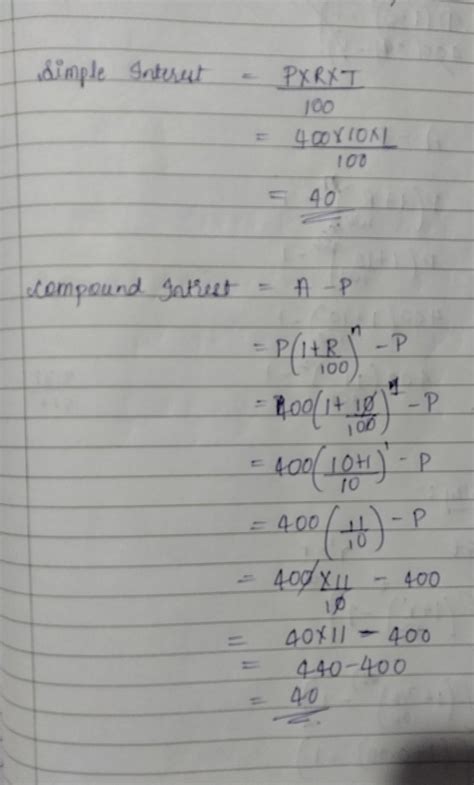 Simple Interest = PXRXT
100
= 400×10×1
100
= 40
Compound Intrest = A - P
= P(1+R/100)^n - P
= 400(1+10/100)^1 - P
= 400(10+1/10)^1 - P
= 400(11/10) - P
= 400×11/10 - 400
= 40×11 - 400
= 440-400
= 40